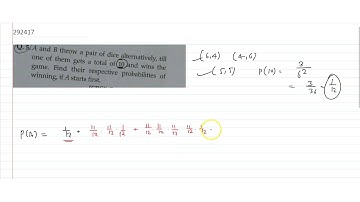 292417
Q.5. A and B throw a pair of dice alternatively, till
one of them gets a total of 10 and wins the
game. Find their respective probabilities of
winning, if A starts first.
(6,4) (4,6)
(5,5) P(10) = 3/6²
= 3/36 = 1/12
P(A) = 1/12 + 11/12 · 11/12 · 1/12 + 11/12 · 11/12 · 11/12 · 11/12 · 1/12 ·